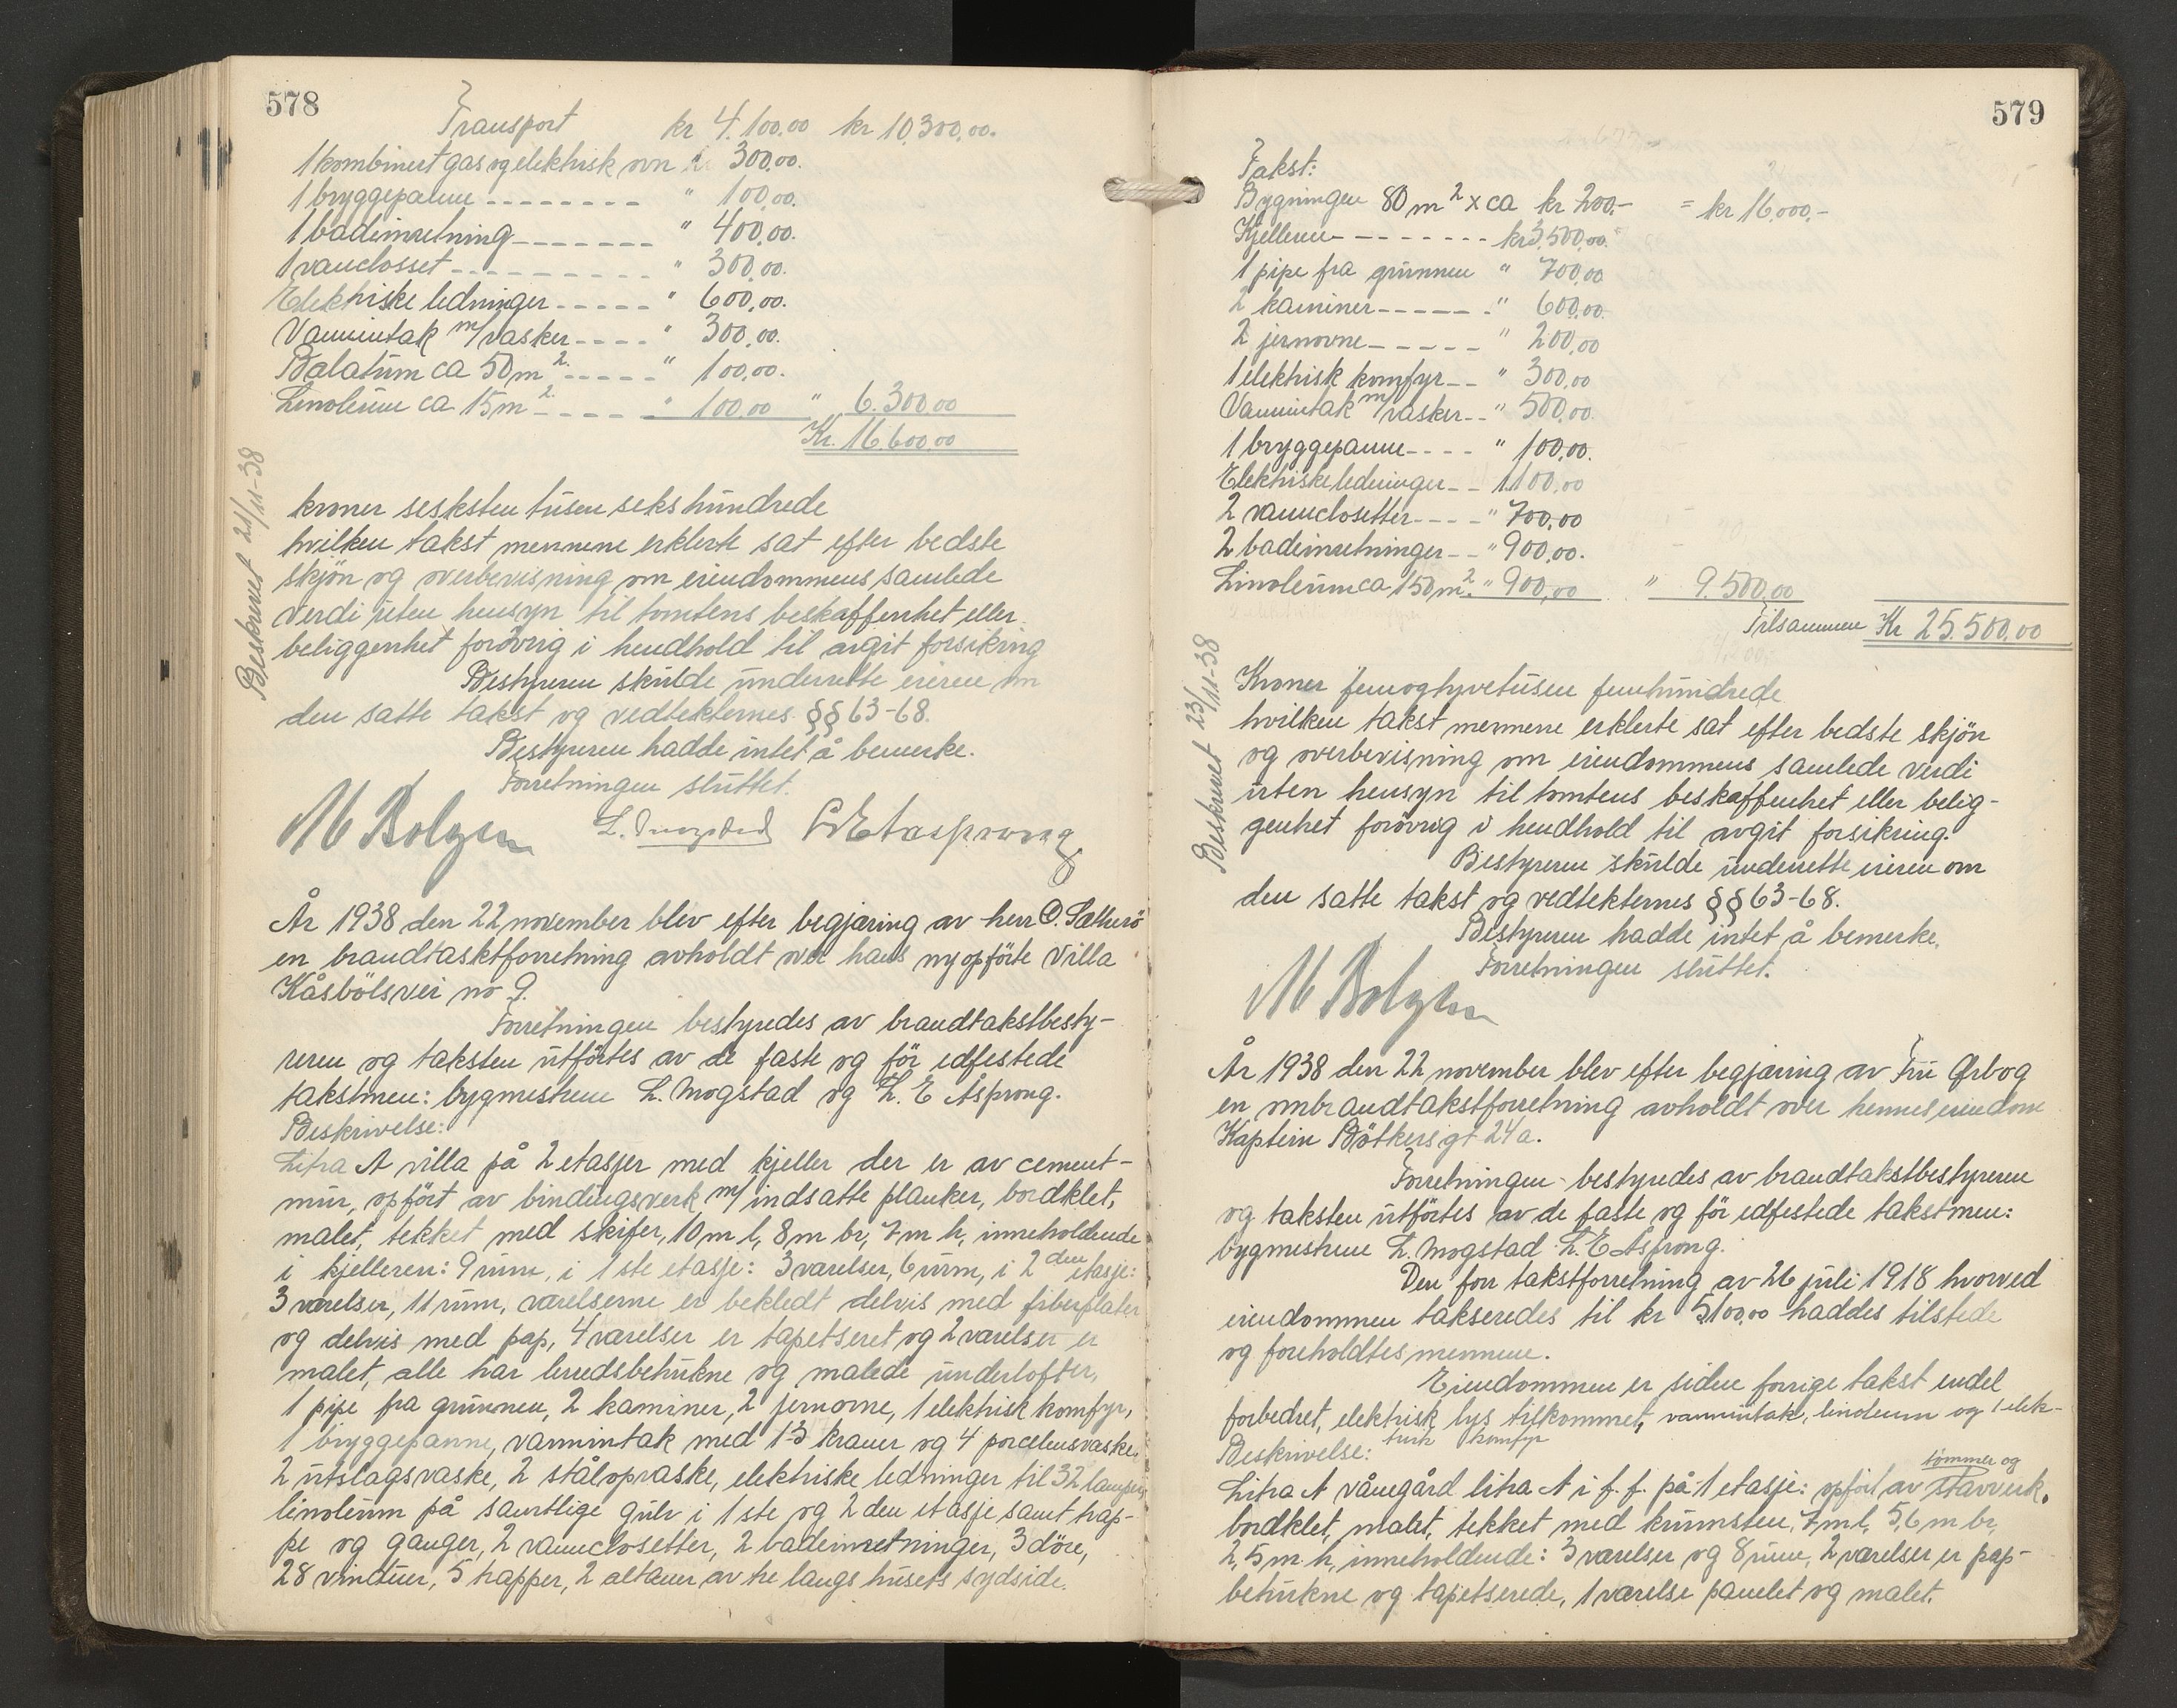 578
Transport kr 4.100.00 kr 10.300.00.
1 kombinert gas og elektrisk ovn 300.00.
1 bryggepanne -------- " 100.00.
1 badeinretning ------- " 400.00.
1 vanclosset --------- " 300.00.
Elektriske ledninger ----- " 600.00.
Vanninntak m/vasker ---- " 300.00.
Balatum ca 50 m2. ----- " 100.00.
Linoleum ca 15 m2. ----- " 100.00 " 6.300.00
Kr. 16.600.00
Beskrevet 21/11-38
kroner sesksten tusen seks hundrede
hvilken takst mennene erklerte sat efter bedste
skjön og overbevisning om eiendommens samlede
verdi uten hensyn til tomtens beskaffenhet eller
beliggenhet forövrig i hendhold til avgit forsikring
Bestyreren skulde underrette eieren om
den satte takst og vedtekternes §§ 63-68.
Bestyreren hadde intet å bemerke.
Forretningen sluttet.
M Bolgen L. Mogstad L E Aasprong
År 1938 den 22 november blev efter begjæring av herr O. Sætherö
en brandtasktforretning avholdt over hans nyopförte Villa
Kåsbölsvei no 9.
Forretningen bestyredes av brandtakstbesty-
reren og taksten utförtes av de faste og för edfestede
takstmen: bygmestrene L. Mogstad og L. E Asprong.
Beskrivelse:
Litra A villa på 2 etasjer med kjeller der er av cement-
mur, opfört av bindingsverk m/ indsatte planker, bordklet,
malet, tekket med skifer, 10 m l, 8 m br, 7 m h, inneholdende
i kjelleren: 9 rum, i 1ste etasje: 3 værelser, 6 rum, i 2den etasje:
3 værelser, 11 rum, værelserne er bekledt delvis med fiberplater
og delvis med pap, 4 værelser er tapetseret og 2 værelser er
malet, alle har lerredsbetrukne og malede underlofter,
1 pipe fra grunnen, 2 kaminer, 2 jernovne, 1 elektrisk komfyr,
1 bryggepanne, vanninntak med 13 kraner og 4 porcelensvaske,
2 utslagsvaske, 2 stålopvaske, elektriske ledninger til 32 lamper,
linoleum på samtlige gulv i 1ste og 2den etasje samt trap-
pe og ganger, 2 vannclosetter, 2 badeinretninger, 3 döre,
28 vinduer, 5 trapper, 2 altaner av tre langs husets sydside.
579
Takst:
Bygningen 80 m2 x ca kr 200,- = kr 16.000,-
Kjelleren -------- kr 3.500.00.
1 pipe fra grunnen " 700.00
2 kaminer ------ " 600.00.
2 jernovne ----- " 200.00
1 elektrisk komfyr -- " 300.00
Vanninntak m/vasker -- " 500.00.
1 bryggepanne ---- " 100.00.
Elektriske ledninger -- 1.100.00
2 vannclosetter ---- " 700.00
2 badeinretninger -- " 900.00.
Linoleum ca 150 m2. " 900.00 " 9.500.00
Tilsammen Kr 25.500.00
Beskrevet 23/11-38
Kroner femogtyvetusen femhundrede
hvilken takst mennene erklerte sat efter bedste skjön
og overbevisning om eiendommens samlede verdi
uten hensyn til tomtens beskaffenhet eller belig-
genhet forövrig i hendhold til avgit forsikring.
Bestyreren skulde underrette eieren om
den satte takst og vedtekternes §§ 63-68.
Bestyreren hadde intet å bemerke.
Forretningen sluttet.
M Bolgen
År 1938 den 22 november blev efter begjæring av Fru Ørbog
en ombrandtakstforretning avholdt over hennes eiendom
Kaptein Bötkers gt 24 a.
Forretningen bestyredes av brandtakstbestyreren
og taksten utförtes av de faste og för edfestede takstmen:
bygmestrene L. Mogstad L. E Asprong.
Den forr takstforretning av 26 juli 1918 hvorved
eiendommen takseredes til kr 5100.00 haddes tilstede
og foreholdtes mennene.
Eiendommen er siden forrige takst endel
forbedret, elektrisk lys tilkommet, vanninntak, linoleum og 1 elek-
trisk komfyr
Beskrivelse:
Litra A vånegård litra A i f. f. på 1 etasje: opfört av tömmer og stavverk,
bordklet, malet, tekket med krumsten, 7 m l, 5,6 m br,
2,5 m h, inneholdende: 3 værelser og 8 rum, 2 værelser er pap-
betrukne og tapetserede, 1 værelse panelet og malet.